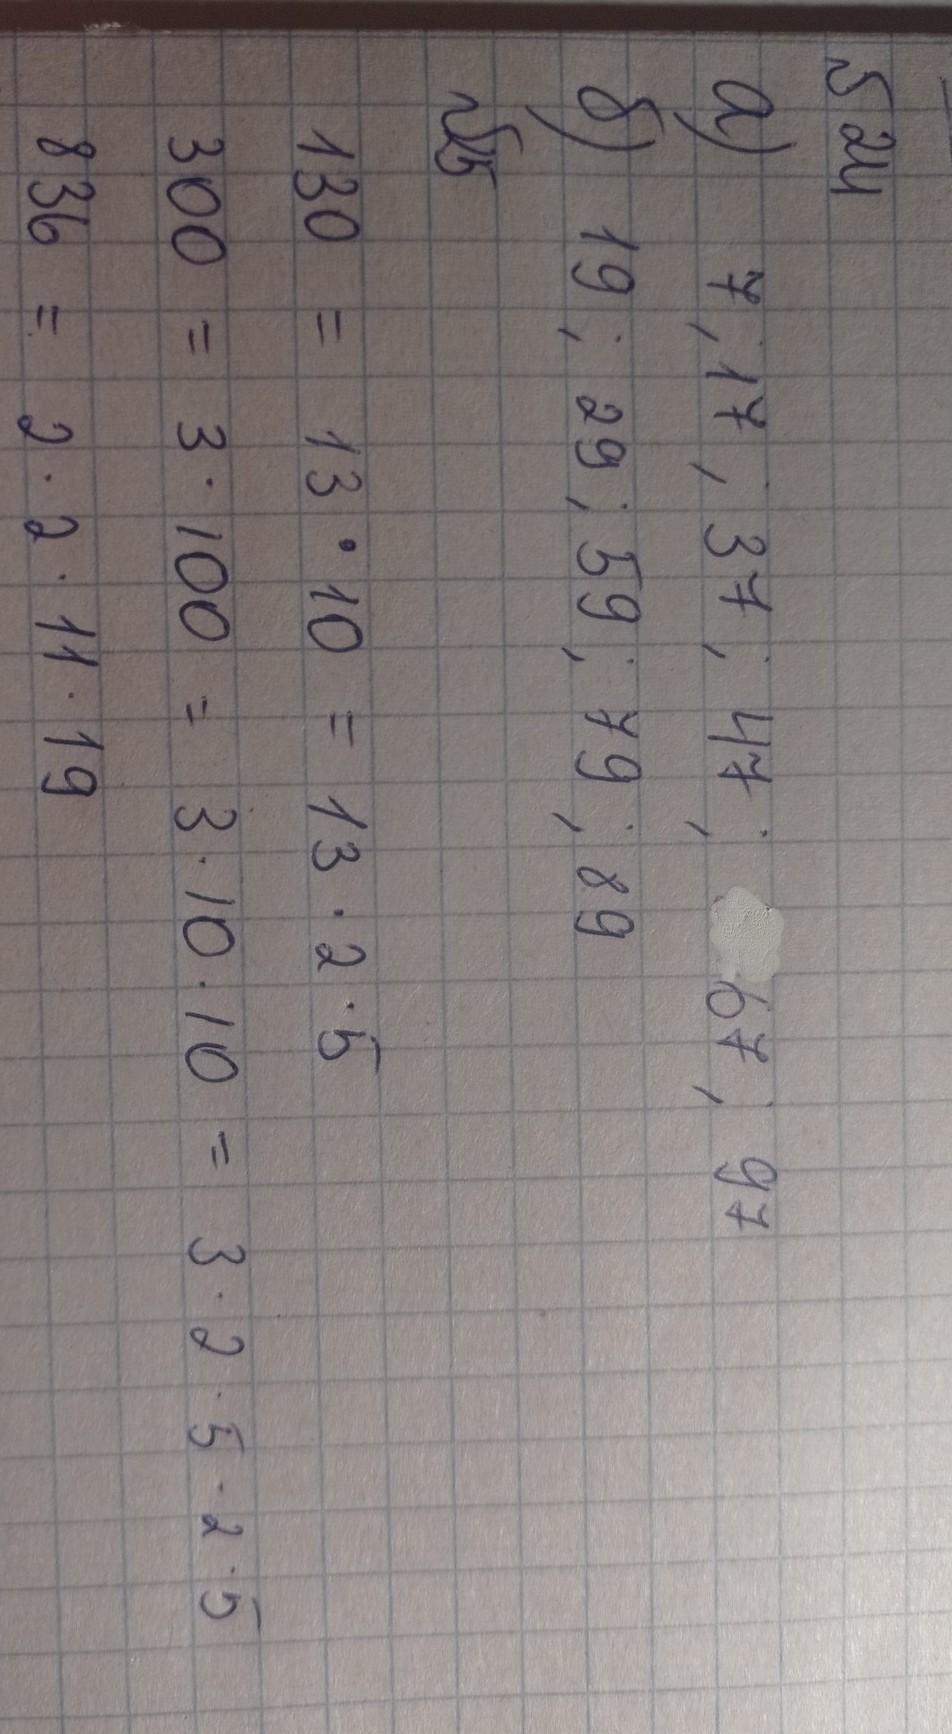 № 24
а) 7; 17; 37; 47; 67; 97
б) 19; 29; 59; 79; 89
№ 25
130 = 13 · 10 = 13 · 2 · 5
300 = 3 · 100 = 3 · 10 · 10 = 3 · 2 · 5 · 2 · 5
836 = 2 · 2 · 11 · 19